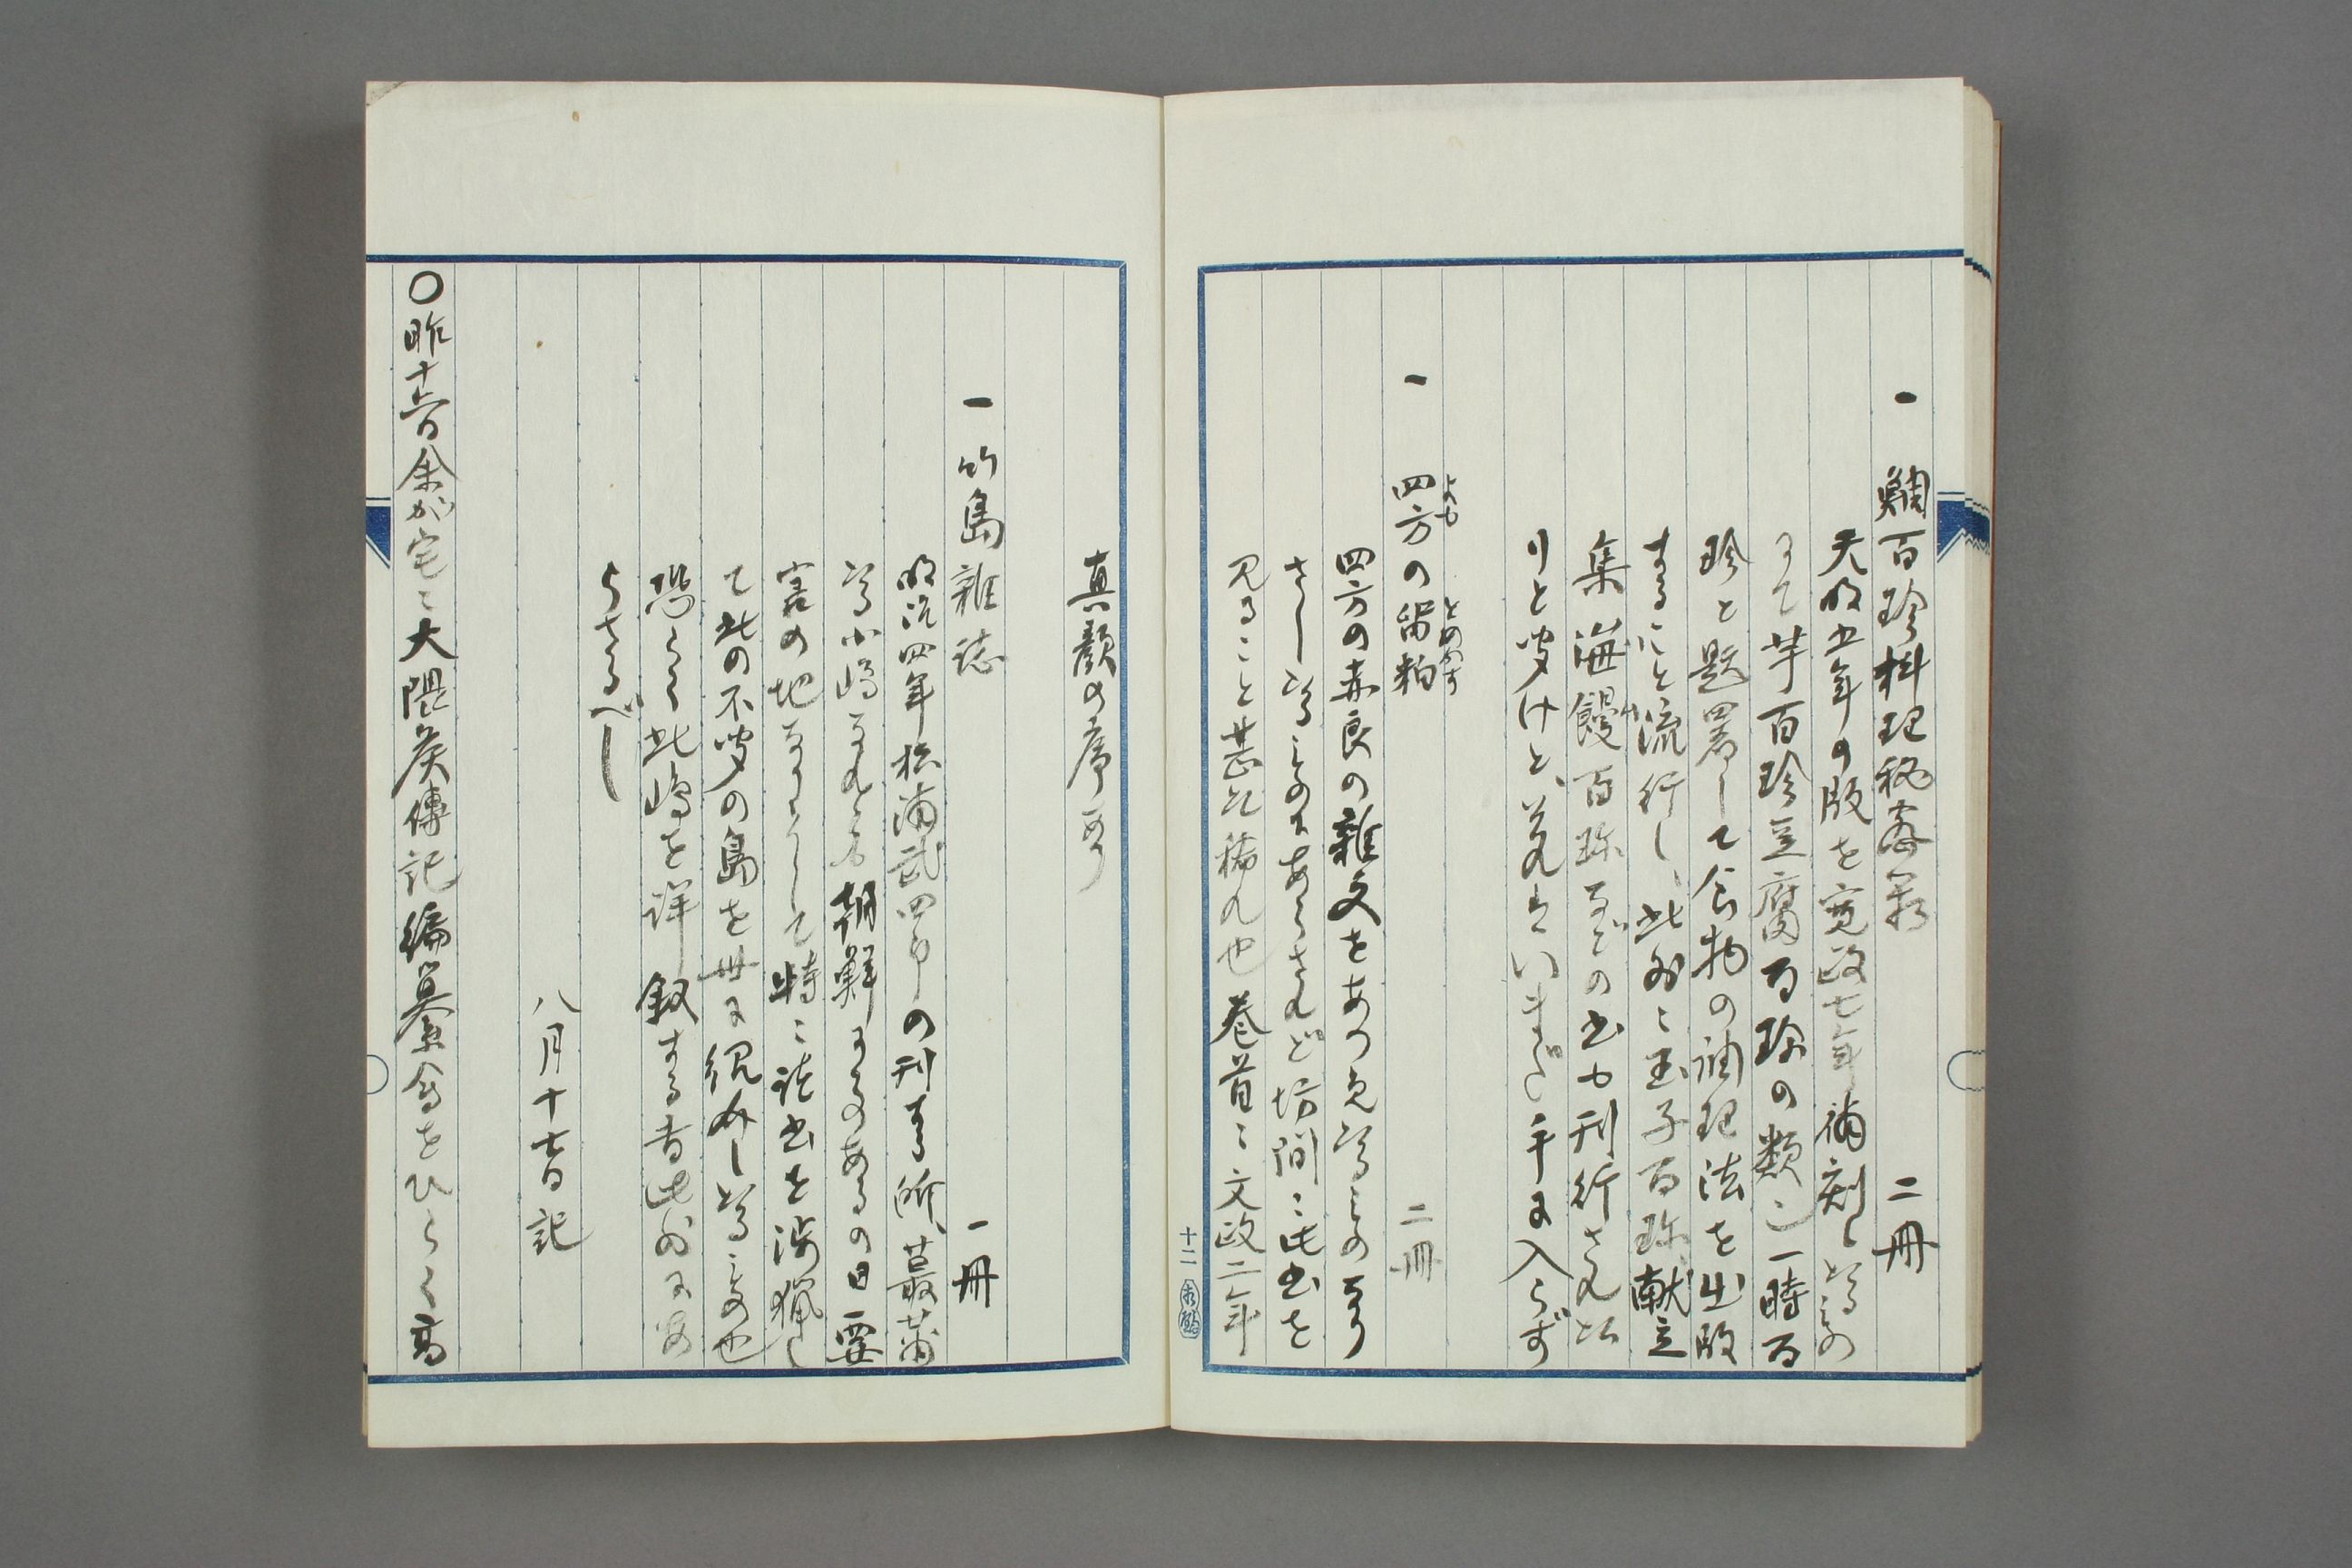 一 鯛百珍料理秘密箱 二冊
天明五年の版を寛政七年補刻しゝもの
にて芋百珍豆腐百珍の類こ一時百
珍と題署して食物の調理法を出版
することを流行し、此外ニ玉子百珎、献立
集、海鰻百珎などの書も刊行された
りと聞けと、夫れはいまだ手に入らず
一 四方の留粕 二冊
よもの とめかす
四方の赤良の雑文をあつめしものなり
さしたるものにあらざれど坊間ニ此書を
見ること甚た稀れ也 巻首ニ文政二年
十二
真顔の序あり
一 竹島雑誌 一冊
明治四年松浦武四郎の刊する所、蕞爾
たる小嶋なれども朝鮮にちかくあるの日要
害の地なりとして特ニ諸書を渉猟し
て此の不聞の島を世に紹介したるもの也
恐らく此嶋を詳叙する者此外に有
らざるべし
八月十七日記
〇昨十六日余が宅ニ大隈侯傳記編纂会をひらく高